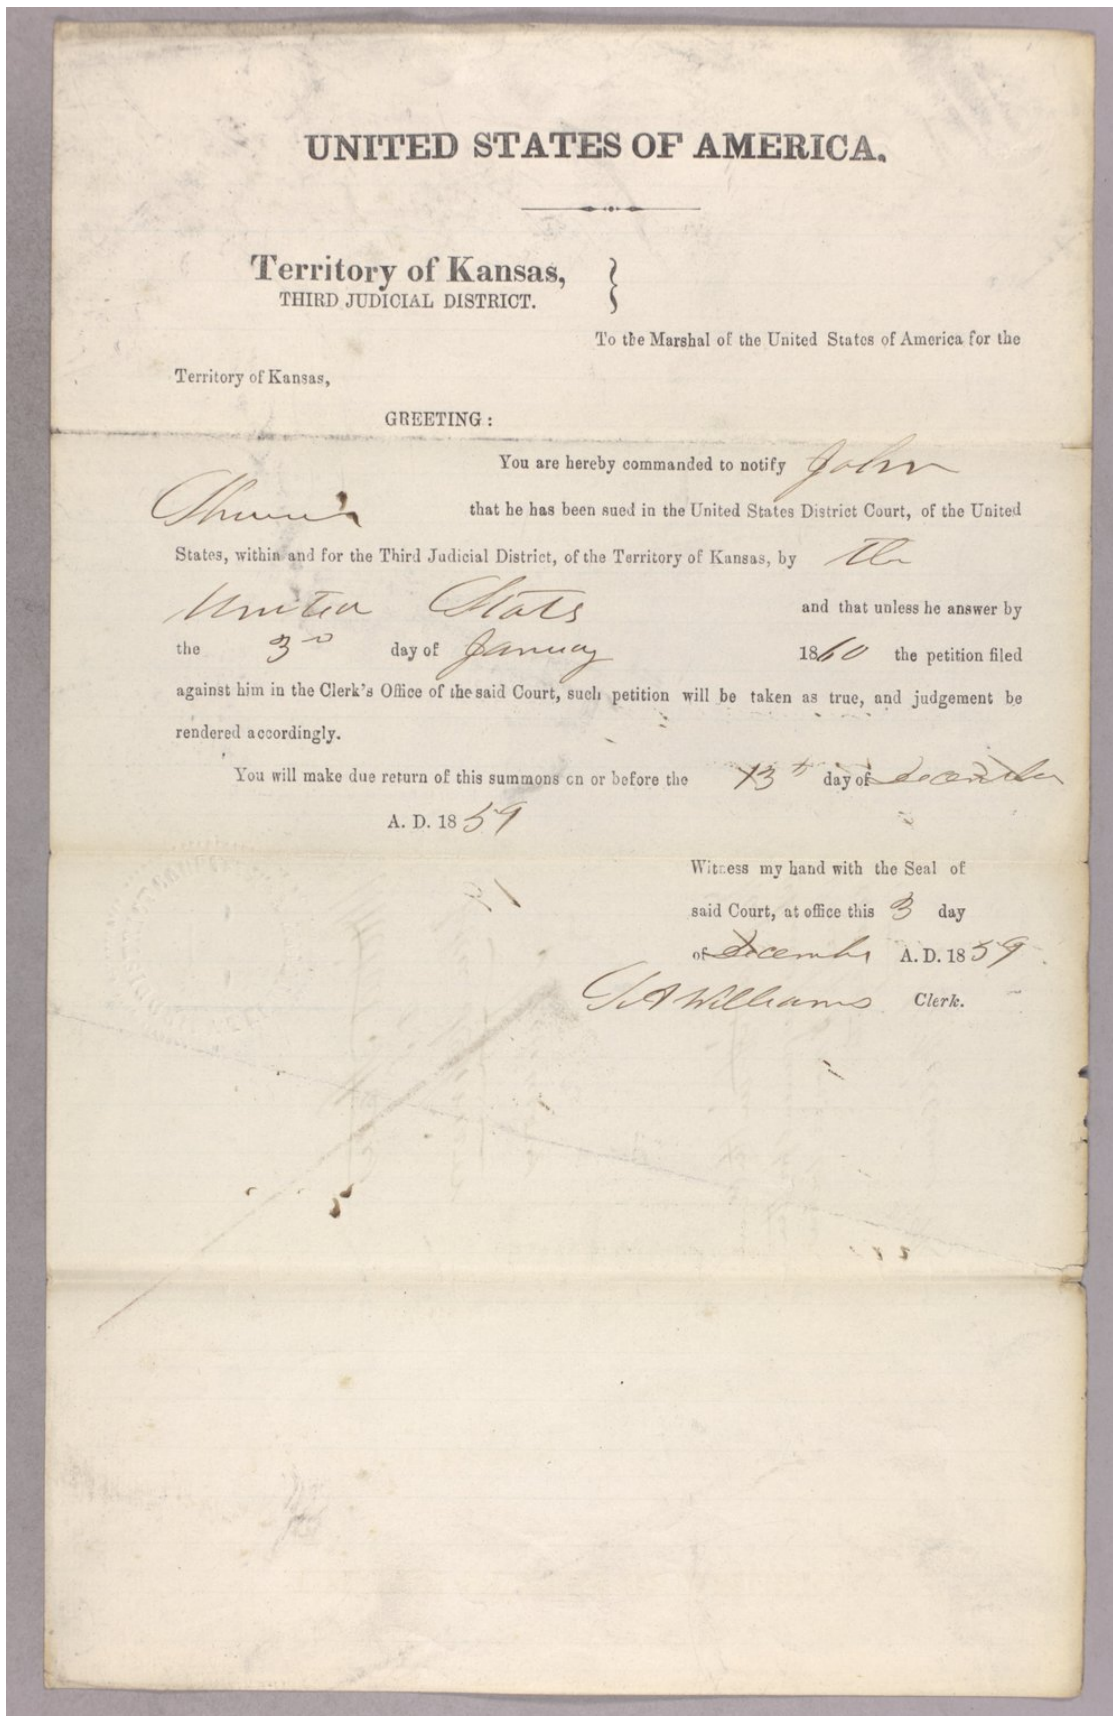 UNITED STATES OF AMERICA.
Territory of Kansas,
THIRD JUDICIAL DISTRICT.
To the Marshal of the United States of America for the
Territory of Kansas,
GREETING:
You are hereby commanded to notify John
that he has been sued in the United States District Court, of the United
States, within and for the Third Judicial District, of the Territory of Kansas, by the
United States and that unless he answer by
the 3d day of January 1860 the petition filed
against him in the Clerk's Office of the said Court, such petition will be taken as true, and judgement be
rendered accordingly.
You will make due return of this summons on or before the 13th day of December
A. D. 1859
Witness my hand with the Seal of
said Court, at office this 3 day
of December A. D. 1859
Williams Clerk.